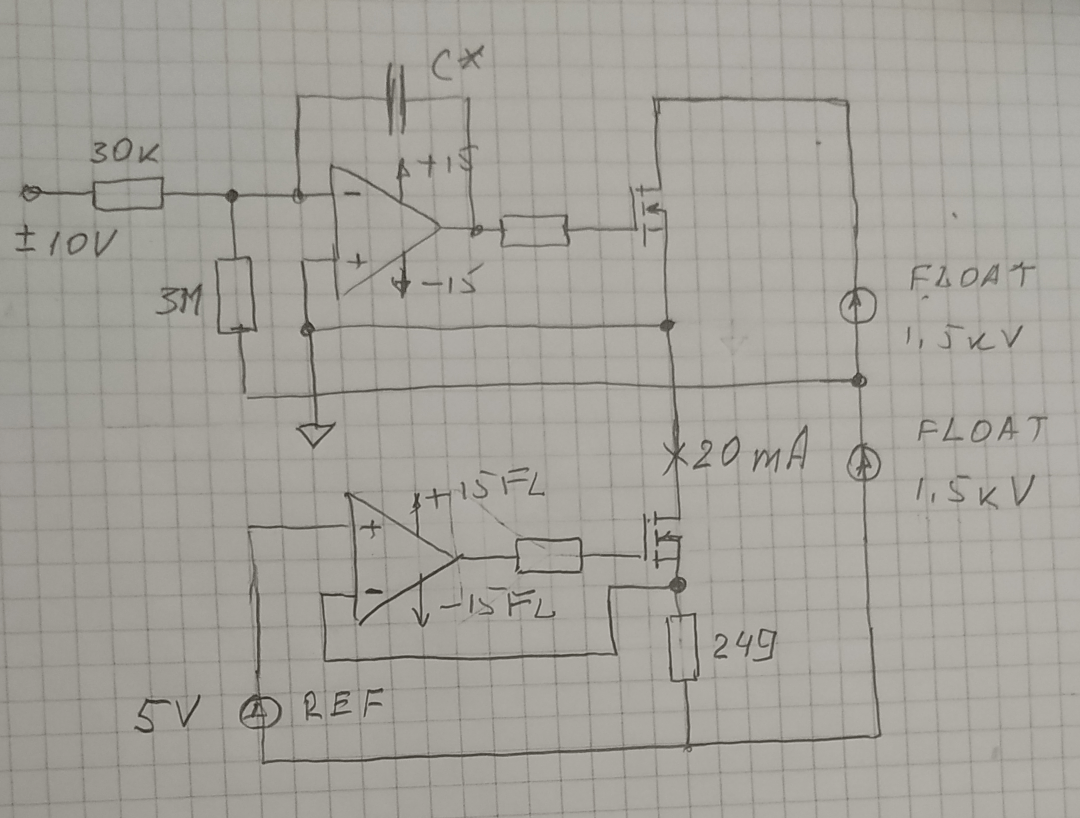 C*
30K
+15
-
± 10V
+
-15
3M
FLOAT
1,5KV
FLOAT
1,5KV
20 mA
+15FL
+
-
-15FL
249
5V
REF